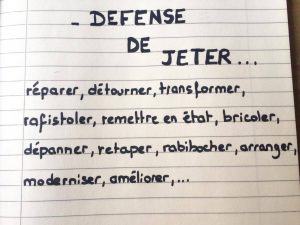 - DEFENSE
DE
JETER...
réparer, détourner, transformer,
rafistoler, remettre en état, bricoler,
dépanner, retaper, rabibocher, arranger,
moderniser, améliorer,...